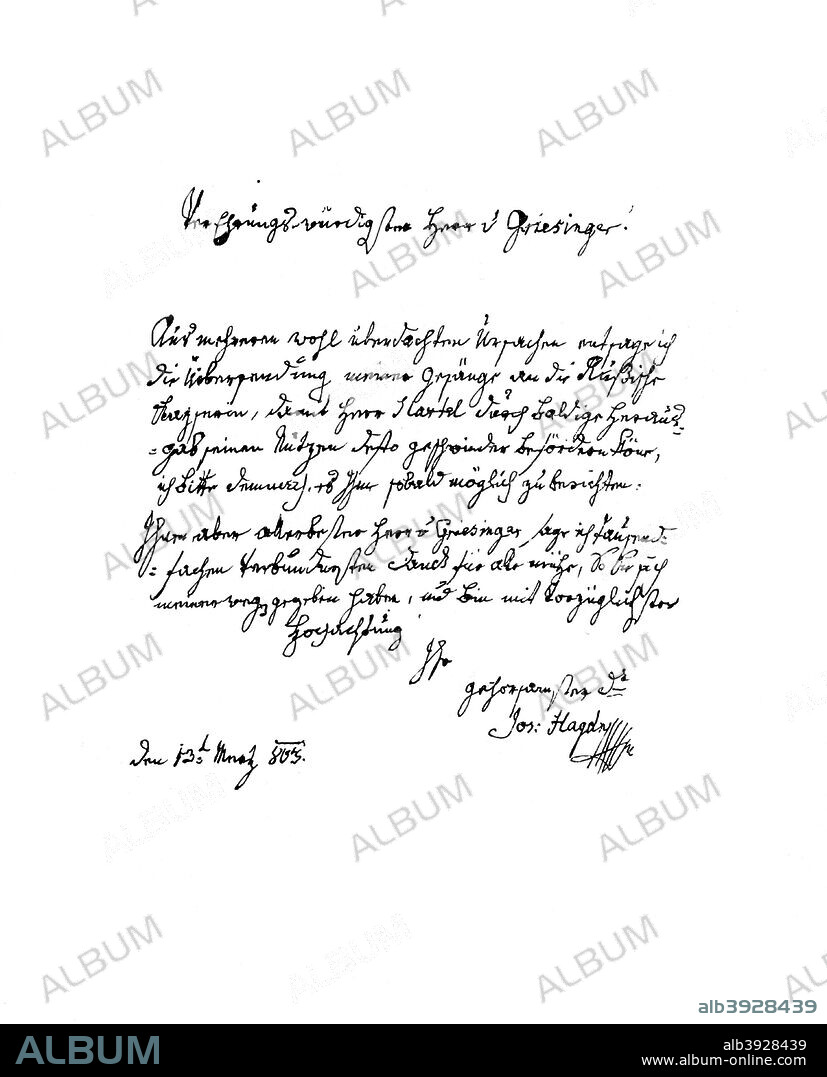 VerEhrungs-würdigster Herr v Griesinger!
Aus mehreren wohl überdachten Ursachen entsage ich
die Übersendung meiner Gesänge an die Rußische
Kayserin, damit Herr Hartel durch baldige Heraus=
=gab seinen Nutzen desto geschwinder beförderen köne,
ich bitte demnach, es Ihm sobald möglich zu berichten:
Ihnen aber allerbester Herr v Griesinger sage ich tausend=
=fachen verbundensten Danck für alle mühe, so Sie sich
meinetwegen gegeben haben, und bin mit vorzüglichster
Hochachtung
Ihr
gehorsamster Dr
Jos: Haydn
den 13t Merz 803.
ALBUM
alb3928439
ALBUM
alb3928439
www.album-online.com